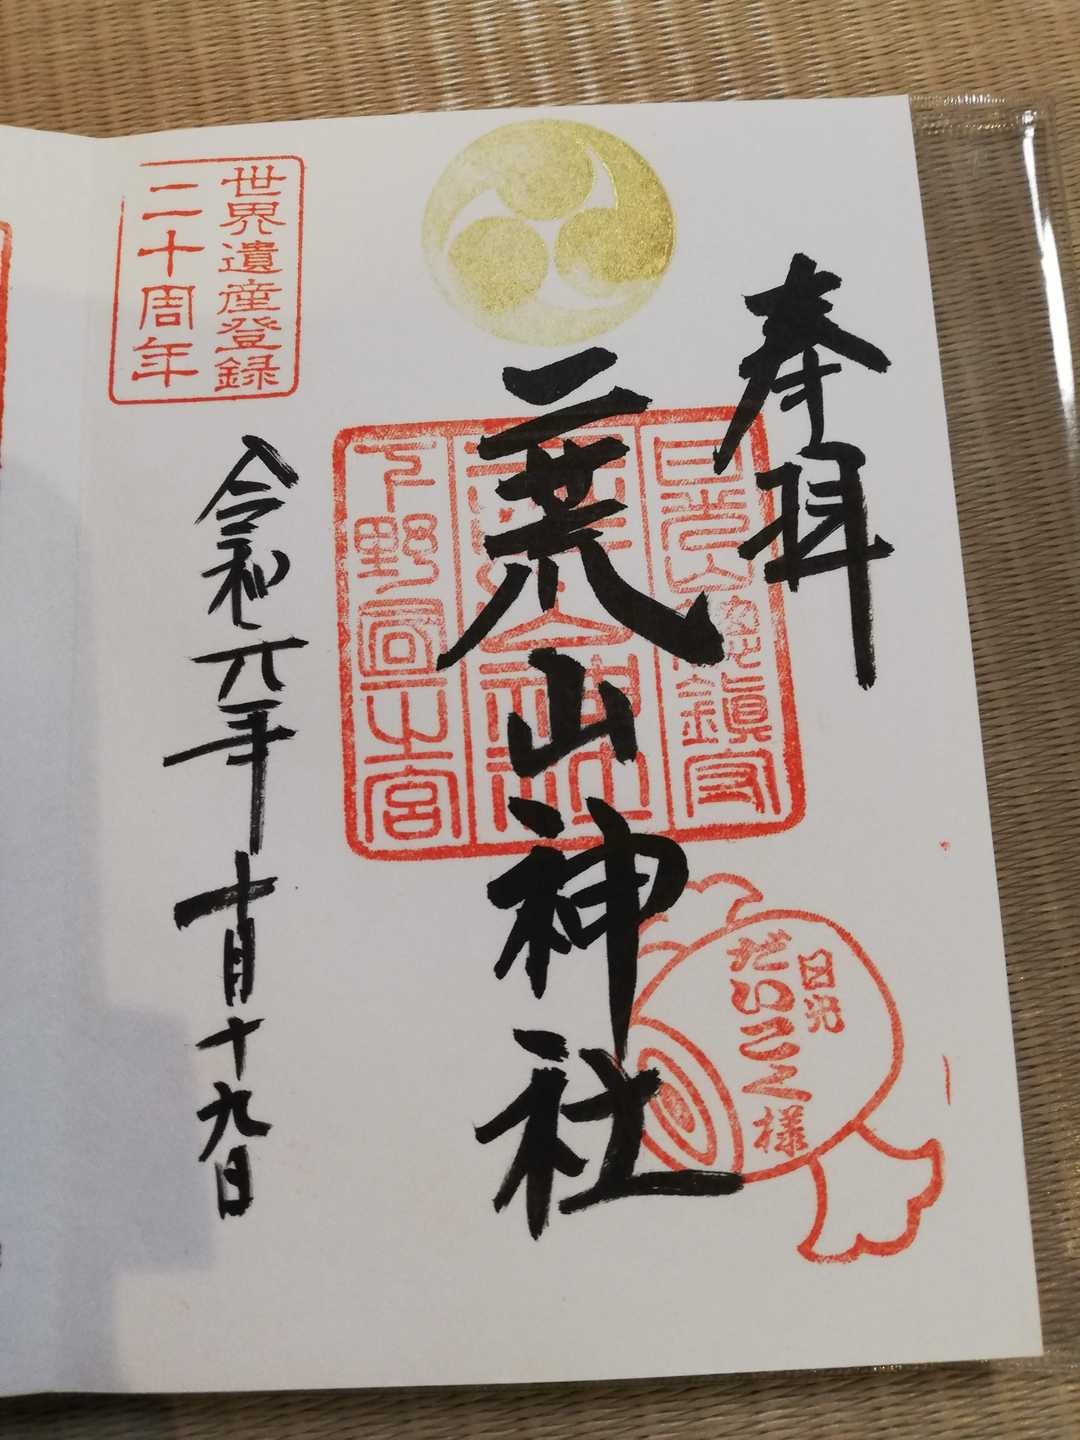 奉拝
二荒山神社
令和元年十月十九日
世界遺産登録
二十周年
日光山總鎮守
二荒山神社
下野國一之宮
日光
だいこく様